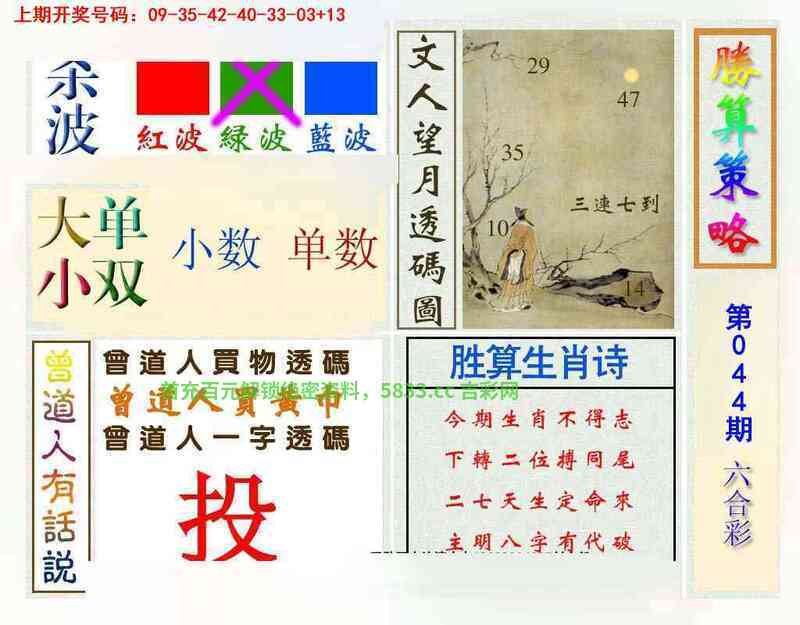 上期开奖号码：09-35-42-40-33-03+13
杀波
紅波 緑波 藍波
大单
小双
小数 单数
文人望月透碼圖
29
47
35
三連七到
10
14
勝算策略
第044期
六合彩
曾道人有話説
曾道人買物透碼
曾道人買黄巾
首充百元解锁绝密资料，5833.cc 吉彩网
曾道人一字透碼
投
胜算生肖诗
今期生肖不得志
下轉二位搏同尾
二七天生定命來
主明八字有代破